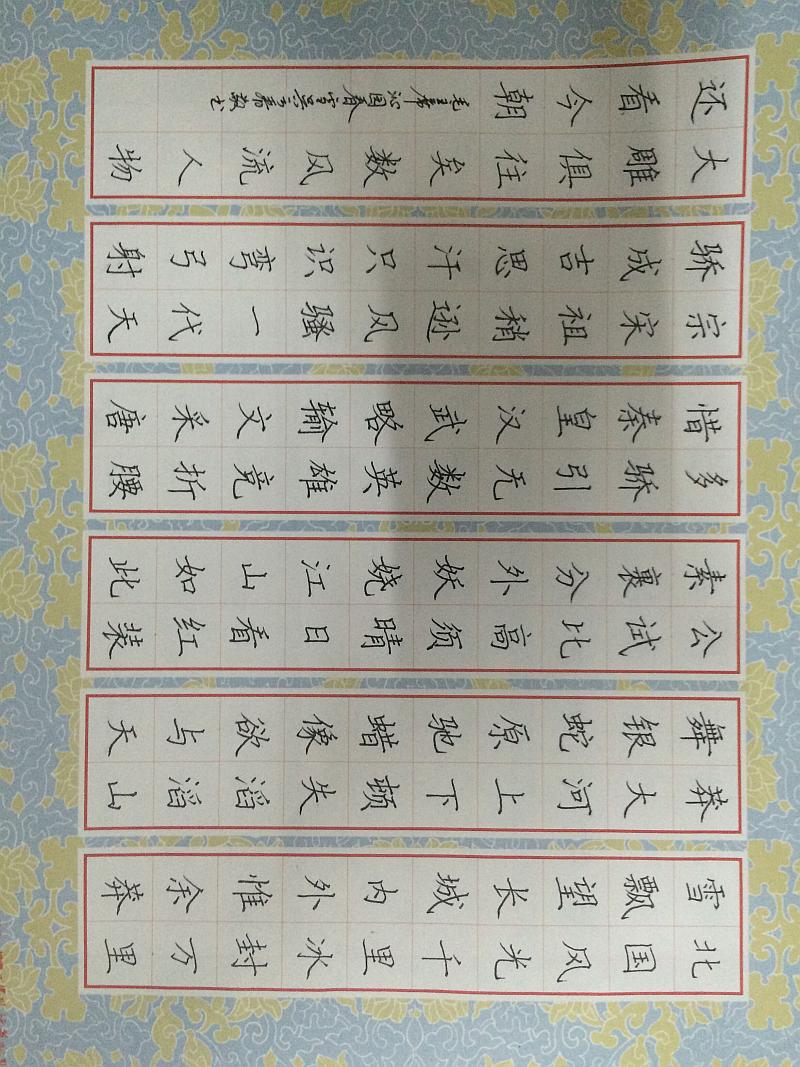 北国风光千里冰封万里
雪飘望长城内外惟余莽
莽大河上下顿失滔滔山
舞银蛇原驰蜡像欲与天
公试比高须晴日看红装
素裹分外妖娆江山如此
多骄引无数英雄竞折腰
惜秦皇汉武略输文采唐
宗宋祖稍逊风骚一代天
骄成吉思汗只识弯弓射
大雕俱往矣数风流人物
还看今朝 毛主席沁园春雪 敬书